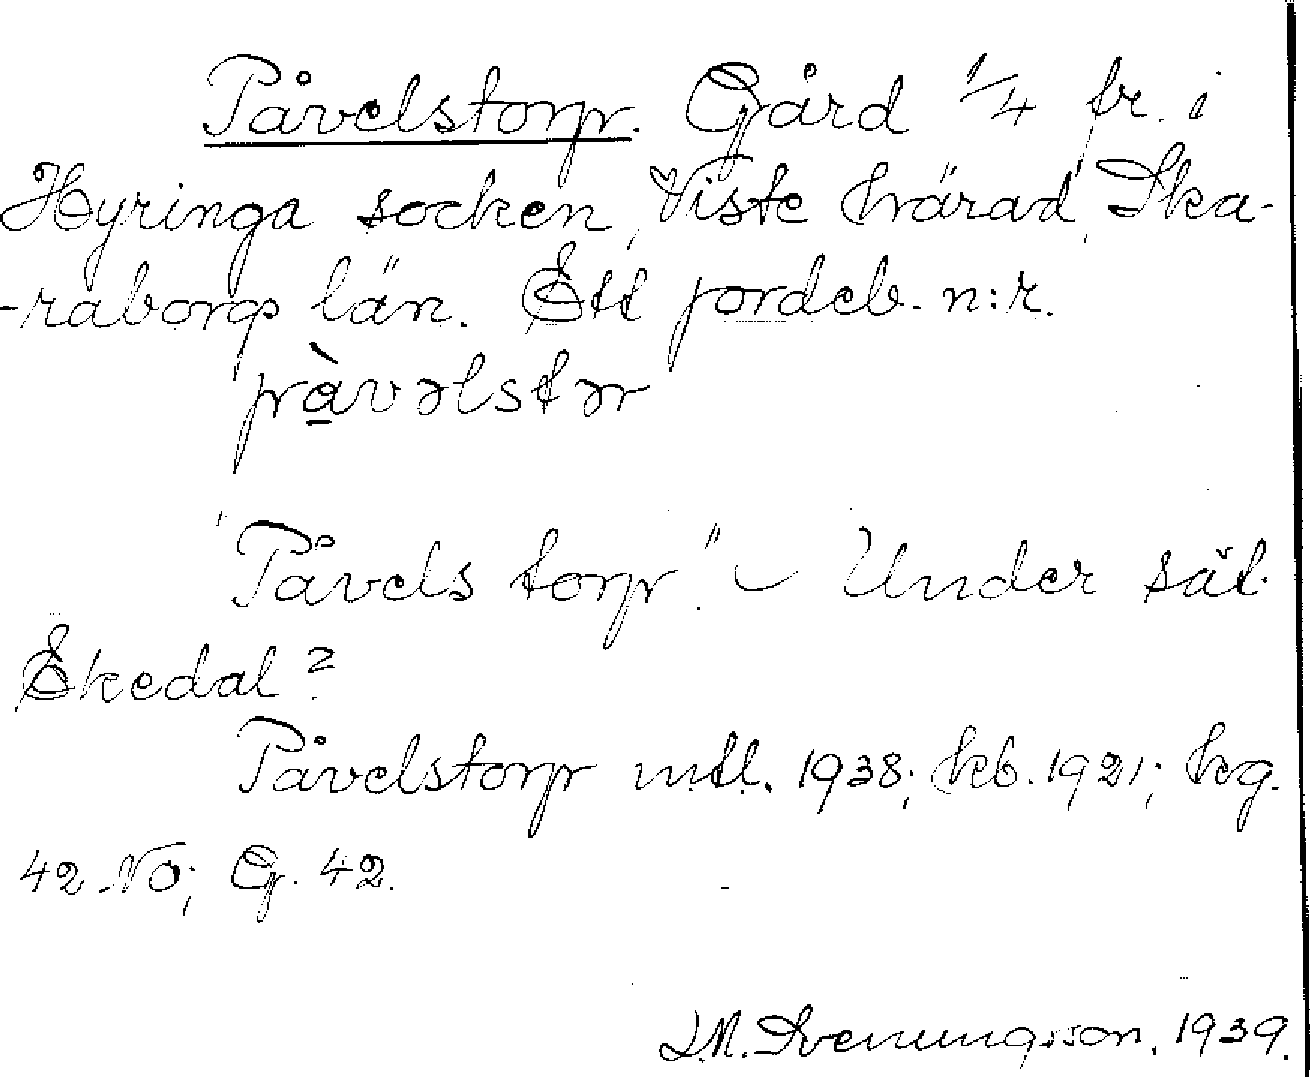 Påvelstorp. Gård 1/4 br. i
Hyringa socken, Viste härad, Ska-
-raborgs län. Ett jordeb. n:r.
pàvəlstər
"Påvels torp". - Under sät.
Ekedal?
Påvelstorp mtl. 1938; kb. 1921; hg.
42 NO; G. 42.
J.M. Svenungsson. 1939.